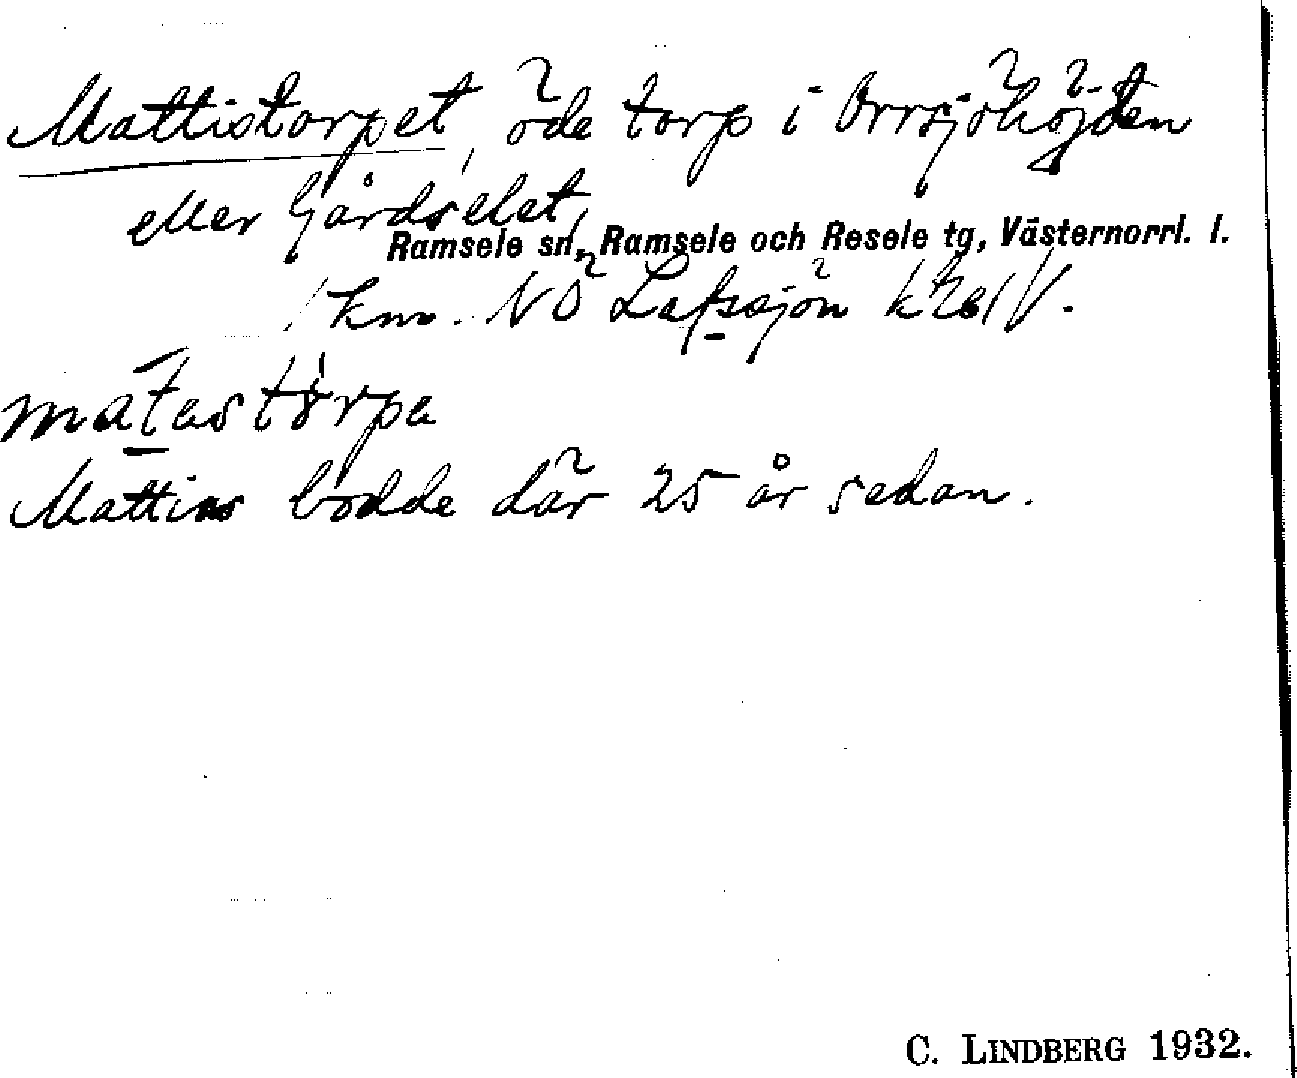 Mattistorpet, öde torp i Orrsjöhöjden
eller Gårdselet,
Ramsele sn, Ramsele och Resele tg, Västernorrl. l.
1 km. NÖ Lafssjön
matastorpa
Mattias bodde där 25 år sedan.
C. LINDBERG 1932.